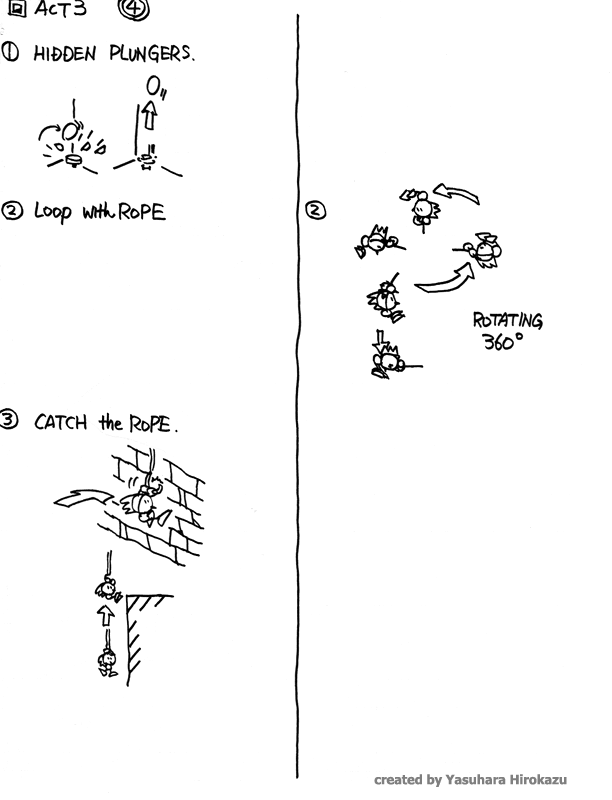 ACT 3 ④
① HIDDEN PLUNGERS.
② Loop with ROPE
③ CATCH the ROPE.
②
ROTATING
360°
created by Yasuhara Hirokazu